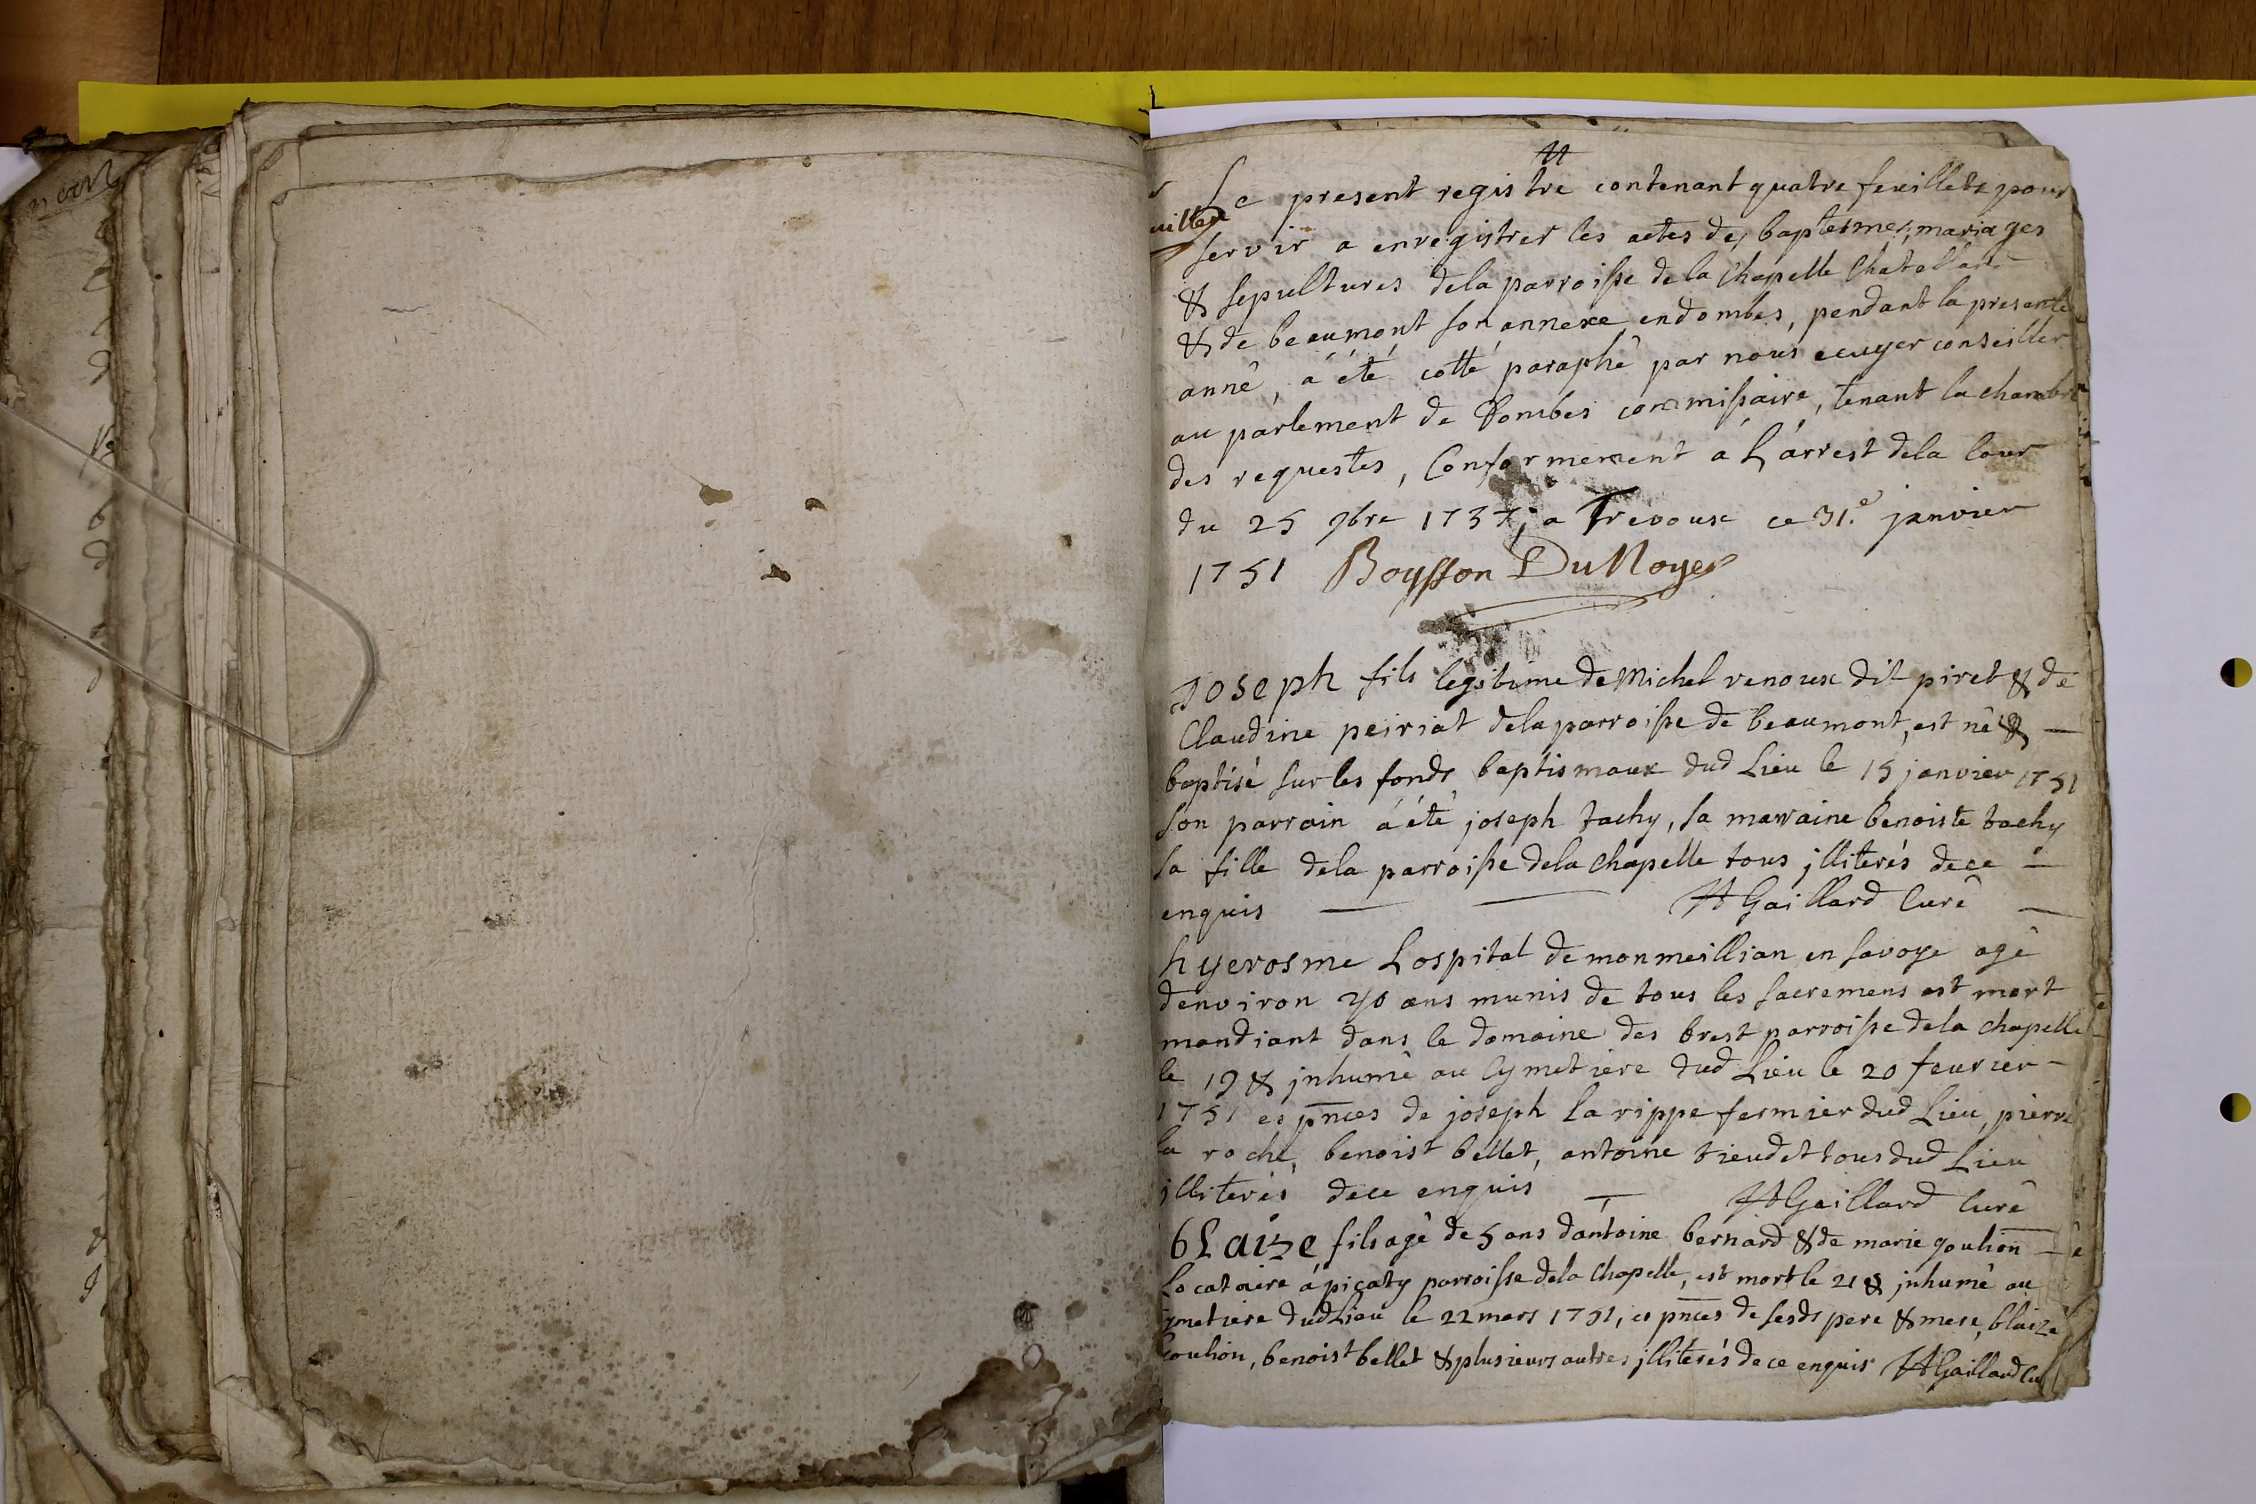 Le present registre contenant quatre feuillets pour
servir a enregistrer les actes des baptesmes, mariages
& sepultures de la parroisse de la Chapelle Chatelard
& de beaumont son annexe en dombes, pendant la presente
annê, á été cotté paraphê par nous ecuyer conseiller
au parlement de Dombes commissaire, tenant la chambre
des requestes, Conformement a L'arrest de la Cour
du 25 9bre 1737, a Trevoux ce 31.e janvier
1751 Boysson DuNoyer
Joseph fils legitime de Michel renoux dit piret & de
Claudine peiriat de la parroisse de beaumont, est nê &
baptisé sur les fonds baptismaux dud Lieu le 15 janvier 1751
son parrain á été joseph tachy, sa marraine benoiste tachy
sa fille de la parroisse de la chapelle tous jlliterés de ce
enquis Gaillard Curê
hyerosme Lospital de monmeillian en savoye agê
denviron 70 ans munis de tous les sacremens est mort
mandiant dans le domaine des brest parroisse de la chapelle
le 19 & jnhumê au Cymetiere dud Lieu le 20 feurier
1751 es pñces de joseph la rippe fermier dud Lieu, pierre
la roche, benoist bellet, antoine tieudet tous dud Lieu
jlliterés de ce enquis Gaillard Curê
bLaize fils agê de 5 ans dantoine bernard & de marie goulion
Locataire á picaty parroisse de la Chapelle, est mort le 21 & jnhumê au
cymetiere dud Lieu le 22 mars 1751, es pñces de sesds pere & mere, blaize
Coulion, benoist bellet & plusieurs autres jlliterés de ce enquis Gaillard Cu